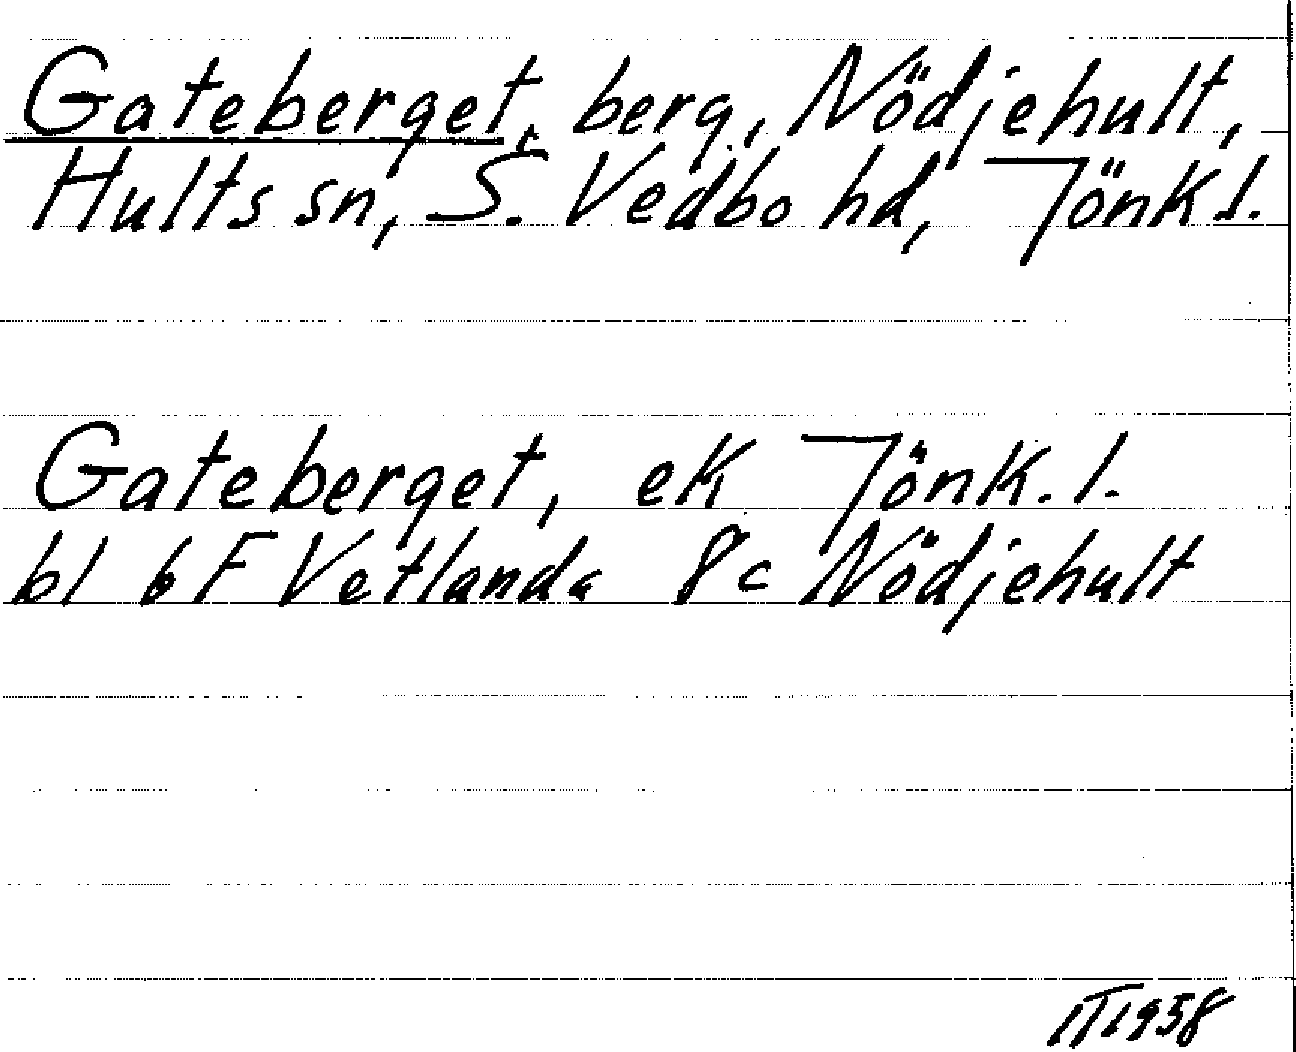 Gateberget, berg, Nödjehult,
Hults sn, S. Vedbo hd, Jönk l.
Gateberget, ek Jönk. l.
bl 6 F Vetlanda 8 c Nödjehult
1958